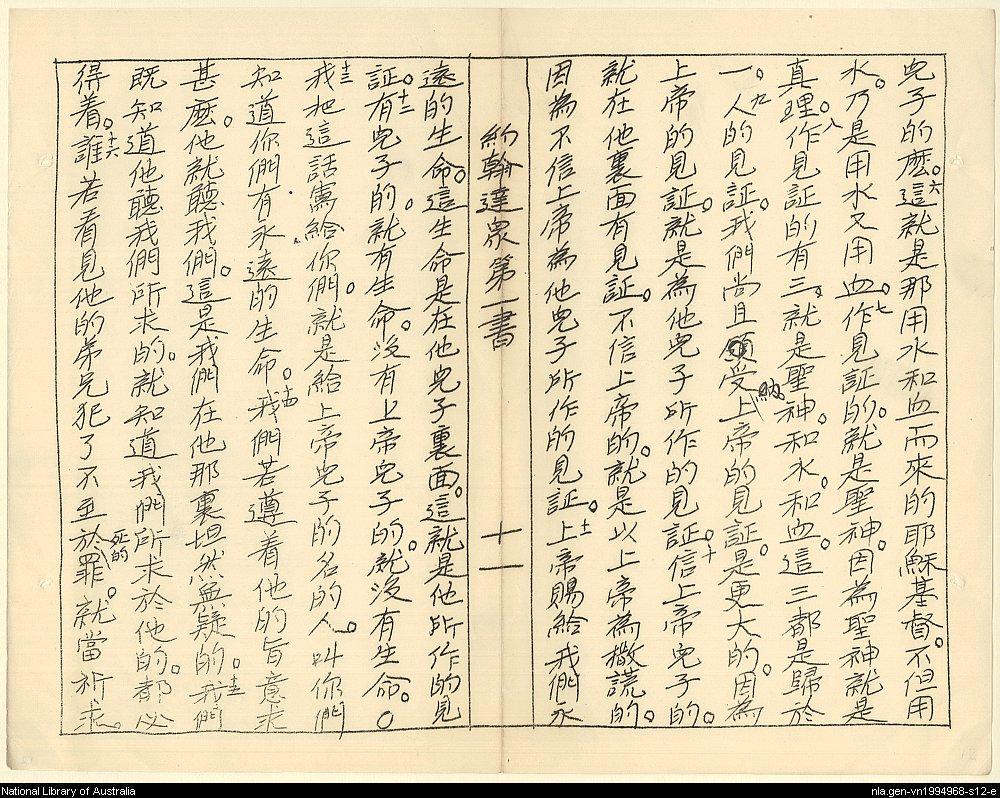 兒子的麼。六這就是那用水和血而來的耶穌基督。不但用
水。乃是用水又用血。七作見証的。就是聖神。因為聖神就是
真理。八作見証的有三。就是聖神。和水。和血。這三都是歸於
一。九人的見証。我們尚且領受上帝的見証。是更大的。因為
納。
上帝的見証。就是為他兒子所作的見証。十信上帝兒子的。
就在他裏面有見証。不信上帝的。就是以上帝為撒謊的。
因為不信上帝為他兒子所作的見証。十一上帝賜給我們永
約翰達衆第一書 十一
遠的生命。這生命是在他兒子裏面。這就是他所作的見
証。十二有兒子的。就有生命。沒有上帝兒子的。就沒有生命。○
十三我把這話寫給你們。就是給上帝兒子的名的人。叫你們
知道你們有永遠的生命。十四我們若遵着他的旨意求
甚麼。他就聽我們。這是我們在他那裏坦然無疑的。十五我們
既知道他聽我們所求的。就知道我們所求於他的。都必
得着。十六誰若看見他的弟兄犯了不至於罪。就當祈求。
死的
National Library of Australia
nla.gen-vn1994968-s12-e